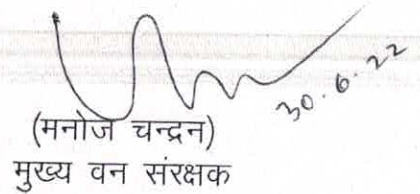 30.6.22
(मनोज चन्द्रन)
मुख्य वन संरक्षक